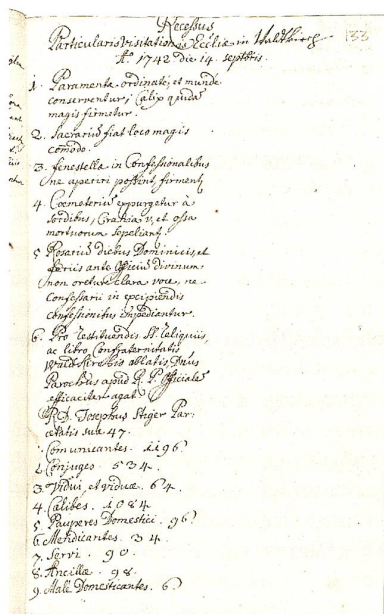 Recessus 133
Particularis Visitationis Eccliæ in Waldkirch
Aº. 1742 die 14. septbris.
1. Paramenta ordinate, et munde
conserventur, Calix quidã
magis firmetur.
2. Sacrariũ fiat loco magis
comodo.
3. fenestellæ in Confessionalibus
ne aperiri possint, firment.
4. Cœmeteriũ expurgetur à
sordibus, et ossa
mortuorum sepeliant.
5 Rosariũ diebus Dominicis, et
festivis ante Officiũ divinum
non oretur clara voce, ne
Confessarii in excipiendis
confessionibus impediantur.
6. Pro restituendis SS. reliquiis,
ac libro Confraternitatis
oblatis Dnus
Parochus apud R. P. Officialẽ
efficaciter agat.
R. D. Josephus Stiger Par:
ætatis suæ 47.
1. Comunicantes. 1196.
2. Conjuges. 534.
3. Vidui, et viduæ. 64.
4. Cælibes. 1084.
5. Pauperes Domestici. 96.
6. Mendicantes. 34.
7. Servi. 90.
8. Ancillæ. 98.
9. Male Domesticantes. 6.